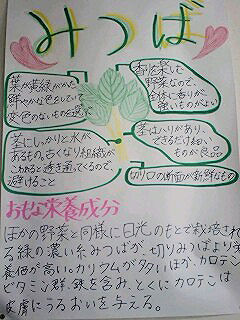 みつば
葉が黄緑がかた
鮮やかな色をしていて
変色のないものを選ぶ
香りを楽しむ
野菜なので、
香りが
強いものがよい
茎にしっかりと水が
あるもの。古くなり組織が
こわれると透き通ってくるので、
避けること
茎はハリがあり、
できるだけ細い
ものが良品
切り口の断面が新鮮なもの
おもな栄養成分
ほかの野菜と同様に日光のもとで栽培され
る緑の濃い糸みつばが、切りみつばより栄
養価が高い。カリウムが多いほか、カロテン、
ビタミンC群、鉄を含み、とくにカロテンは
皮膚にうるおいを与える。